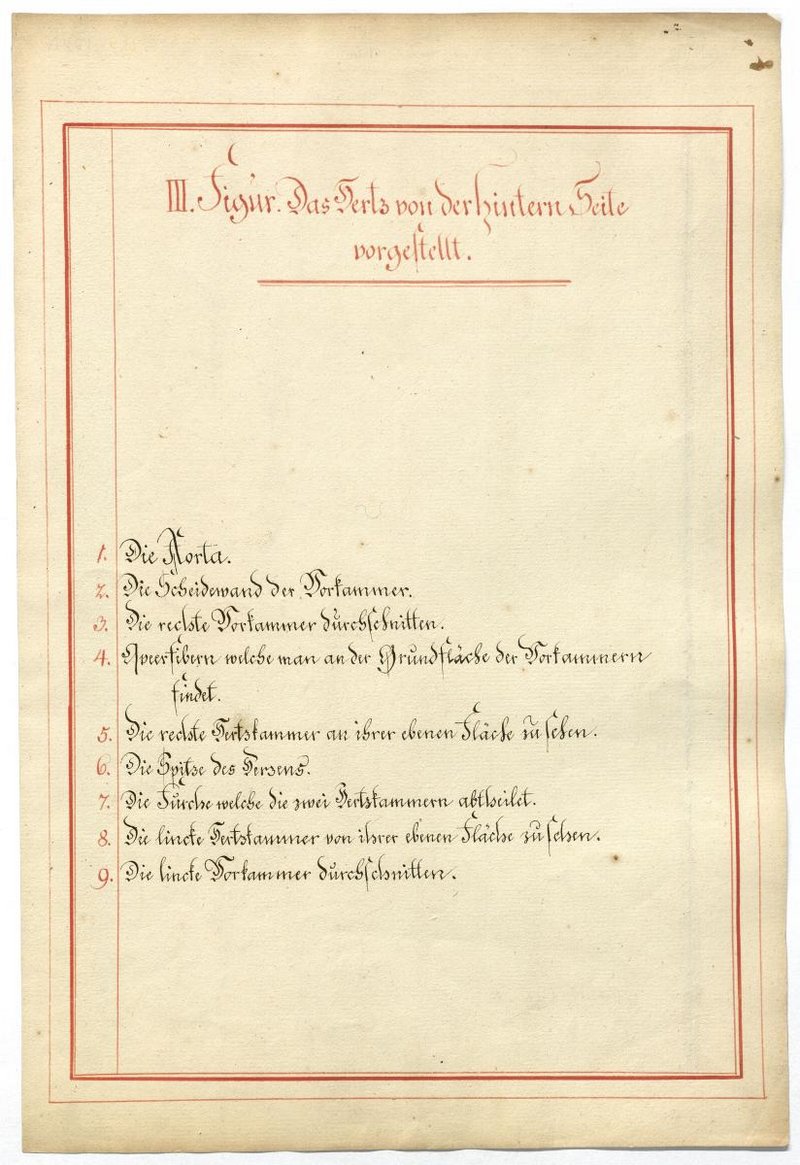 III. Figur. Das Hertz von der hintern Seite
vorgestellt.
1. Die Aorta.
2. Die Scheidewand der Vorkammer.
3. Die rechte Vorkammer durchschnitten.
4. Qveerfibern welche man an der Grundfläche der Vorkammern
findet.
5. Die rechte Hertzkammer an ihrer ebenen Fläche zu sehen.
6. Die Spitze des Herzens.
7. Die Furche welche die zwei Hertzkammern abtheilet.
8. Die lincke Hertzkammer von ihrer ebenen Fläche zu sehen.
9. Die lincke Vorkammer durchschnitten.